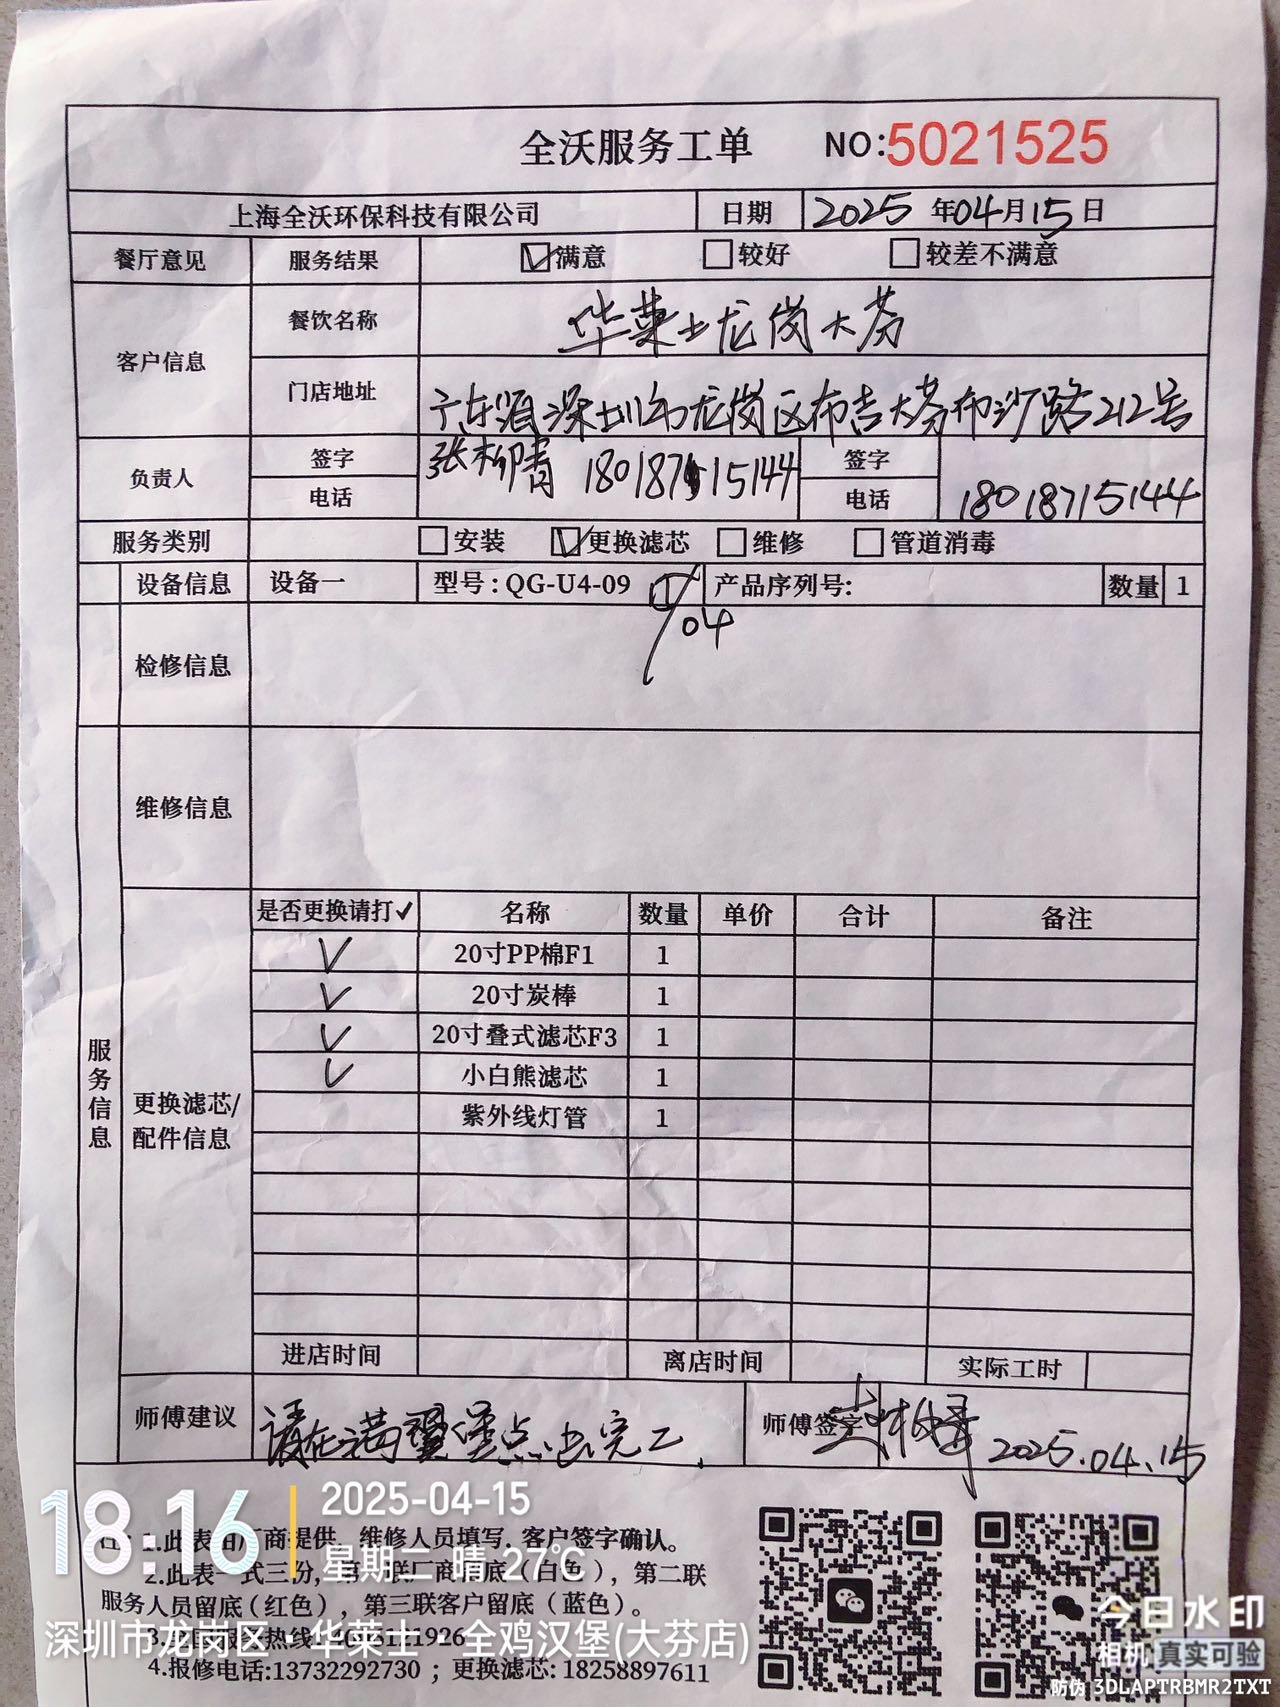 全沃服务工单 NO:5021525
上海全沃环保科技有限公司 日期 2025年04月15日
餐厅意见 服务结果 ☑满意 □较好 □较差不满意
客户信息 餐饮名称 华莱士龙岗大芬
门店地址 广东省深圳市龙岗区布吉大芬布沙路212号
负责人 签字 张柳青 签字
电话 18018715144 电话 18018715144
服务类别 □安装 ☑更换滤芯 □维修 □管道消毒
设备信息 设备一 型号:QG-U4-09 产品序列号: 数量 1
04
检修信息
维修信息
服务信息
更换滤芯/配件信息
是否更换请打✓ 名称 数量 单价 合计 备注
✓ 20寸PP棉F1 1
✓ 20寸炭棒 1
✓ 20寸叠式滤芯F3 1
✓ 小白熊滤芯 1
紫外线灯管 1
进店时间 离店时间 实际工时
师傅建议 请在满 堡点 完工 师傅签字 2025.04.15
1.此表由厂商提供,维修人员填写,客户签字确认。
2.此表一式三份,第一联厂商留底(白色),第二联
服务人员留底(红色),第三联客户留底(蓝色)。
4.报修电话:13732292730;更换滤芯:18258897611
18:16 2025-04-15
星期二 晴 27℃
深圳市龙岗区·华莱士·全鸡汉堡(大芬店)
今日水印
相机 真实可验
防伪 3DLAPTRBMR2TXT